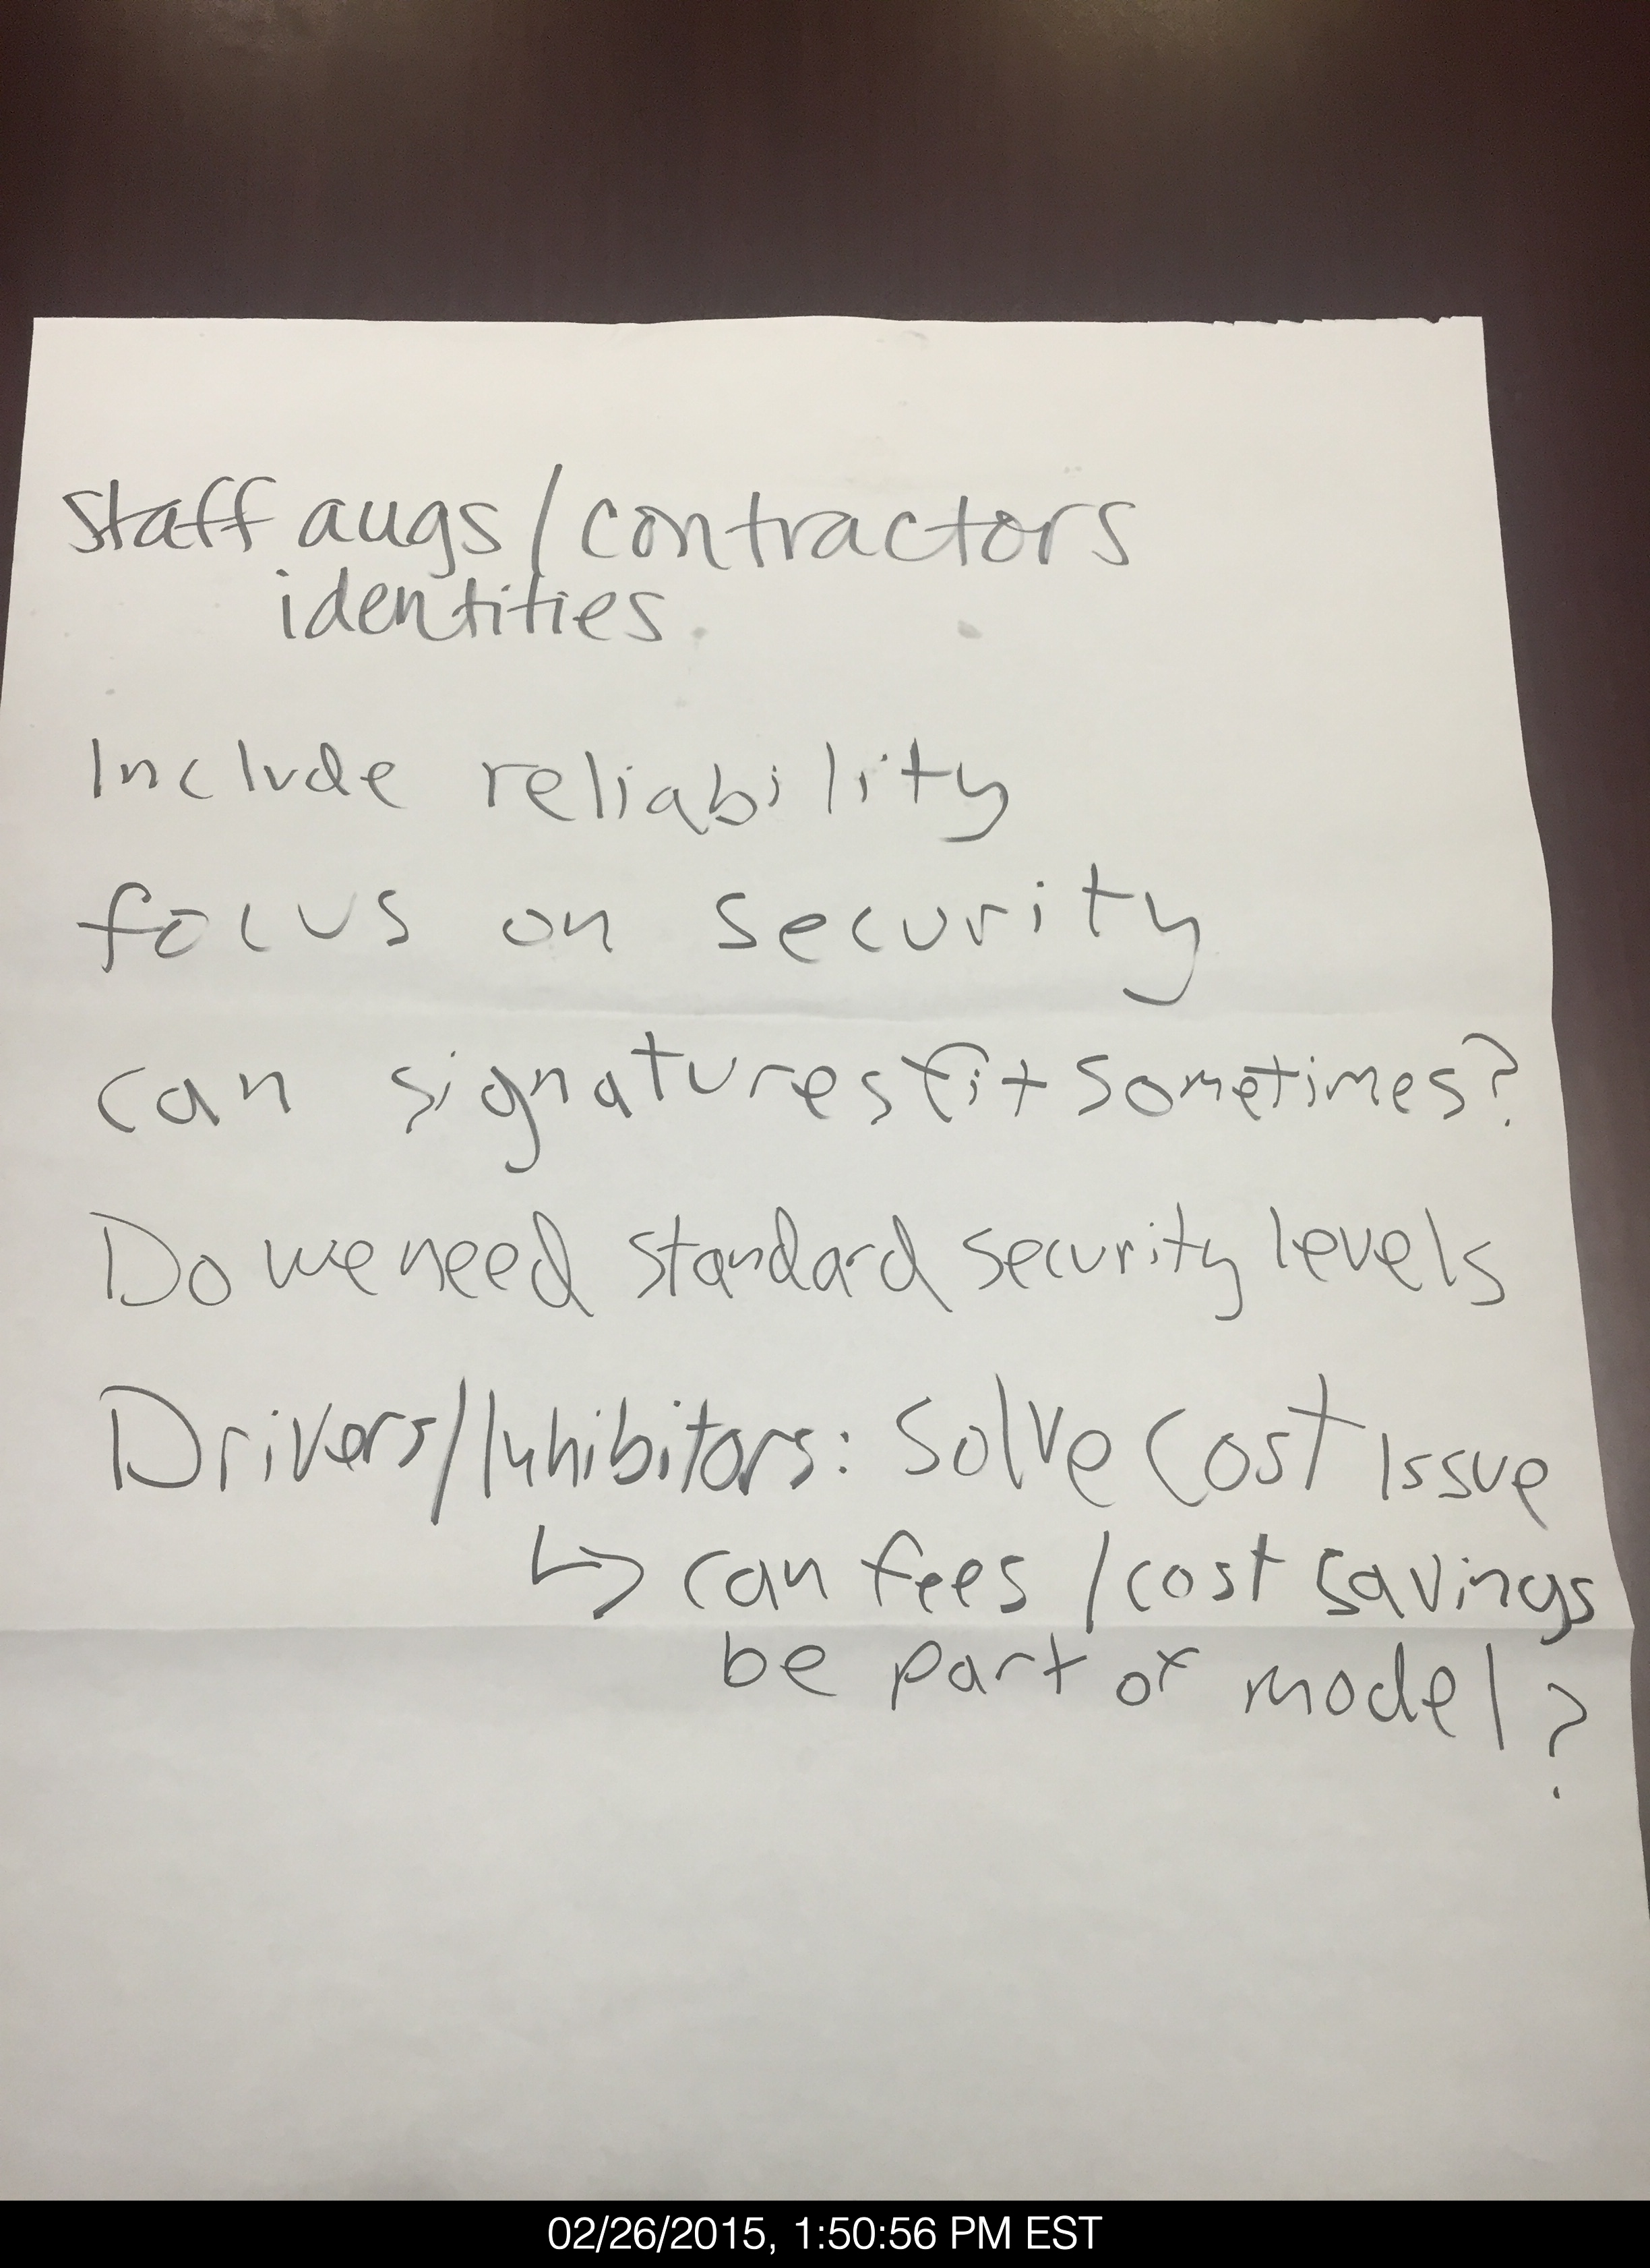 Staff augs/contractors
identities
Include reliability
focus on security
can signatures fit sometimes?
Do we need standard security levels
Drivers/Inhibitors: Solve Cost Issue
↳ can fees /cost savings
be part of model?
02/26/2015, 1:50:56 PM EST